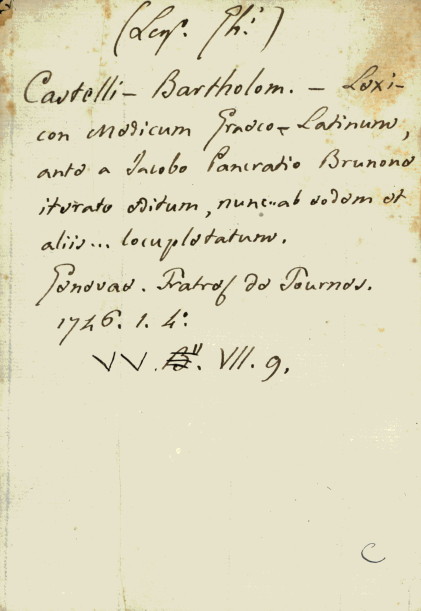 (Lens. Ph.)
Castelli - Bartholom. - Lexi-
con Medicum Graeco-Latinum,
ante a Jacobo Pancratio Brunone
iterato editum, nunc ab eodem et
aliis... locupletatum.
Genevae. Fratres de Tournes.
1746. 1. 4:
VV. B". VII. 9.
C